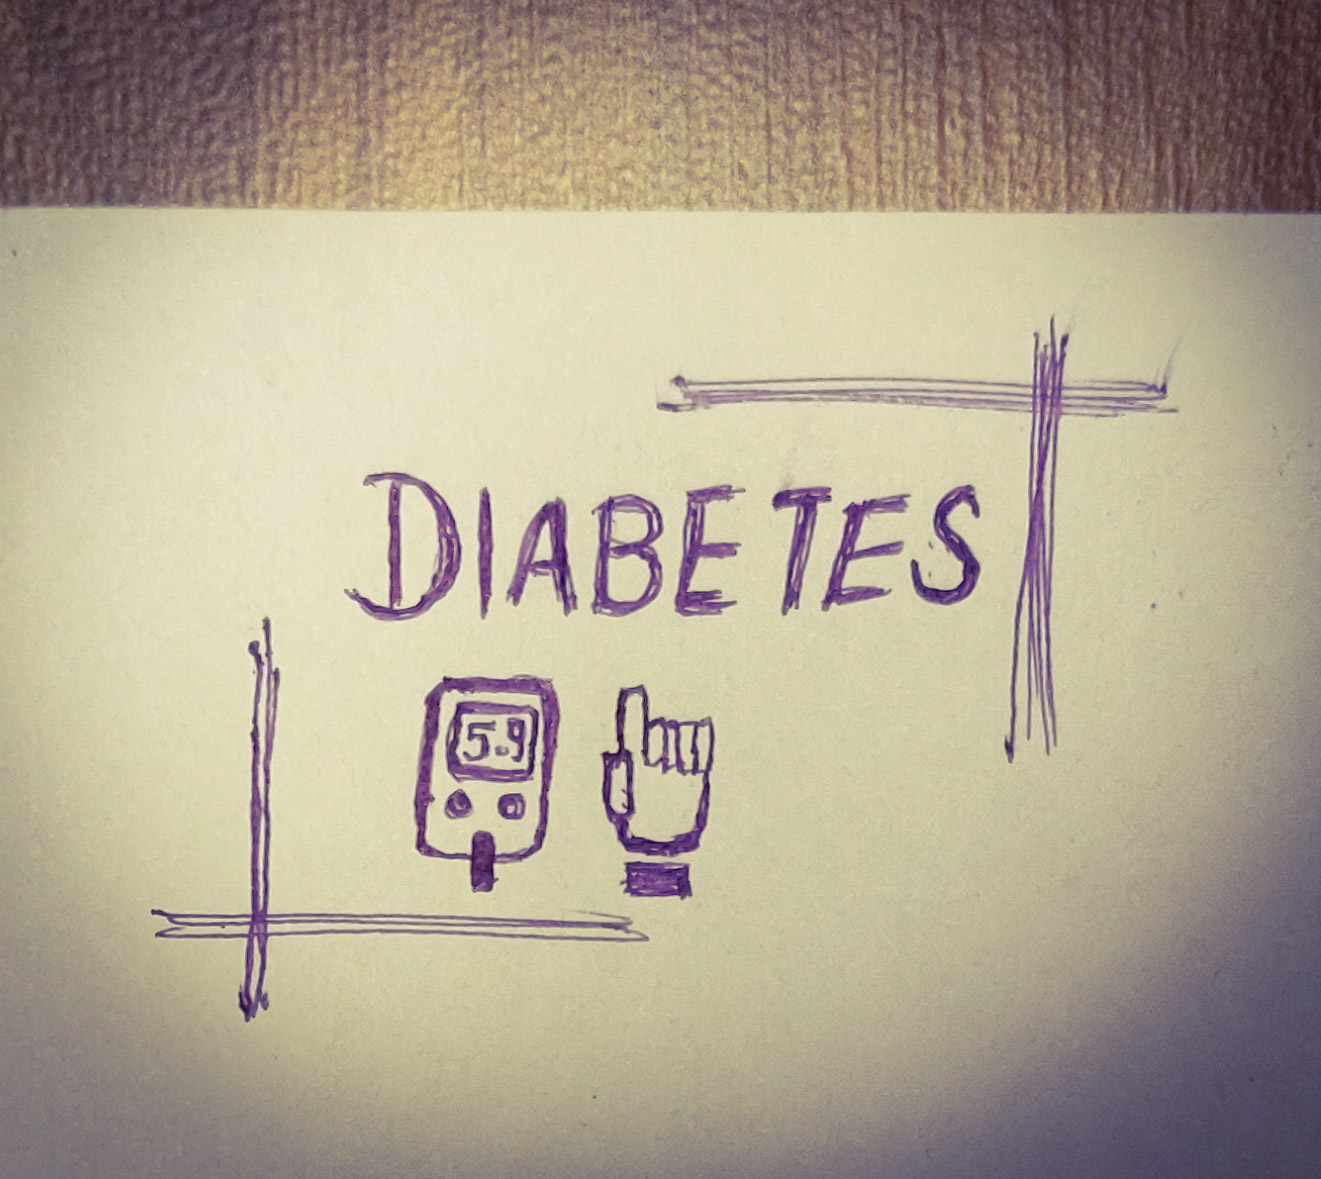 DIABETES
5.9